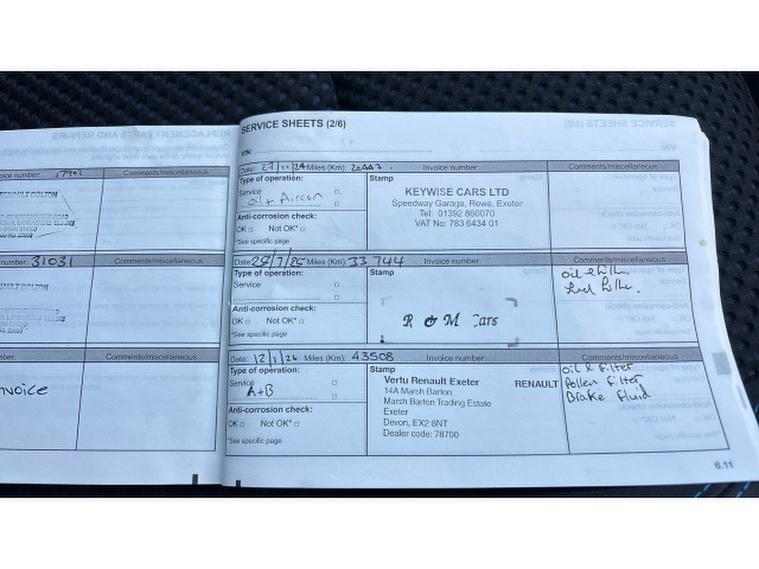 SERVICE SHEETS (2/6)
VIN:
Invoice number: 17902
Comments/miscellaneous
RENAULT BOLTON
number: 31031
Comments/miscellaneous
Comments/miscellaneous
nvoice
Date: 27/11/24 Miles (Km): Invoice number:
Type of operation:
Service
oil + Aircon
Anti-corrosion check:
OK Not OK*
*See specific page
Stamp
KEYWISE CARS LTD
Speedway Garage, Rewe, Exeter
Tel: 01392 860070
VAT No: 783 6434 01
Comments/miscellaneous
Date 28/7/25 Miles (Km): 33744 Invoice number:
Type of operation:
Service
Anti-corrosion check:
OK Not OK*
*See specific page
Stamp
R & M Cars
Comments/miscellaneous
oil & filter
fuel filter.
Date: 12/1/26 Miles (Km): 43508 Invoice number:
Type of operation:
Service
A+B
Anti-corrosion check:
OK Not OK*
*See specific page
Stamp
Vertu Renault Exeter RENAULT
14A Marsh Barton
Marsh Barton Trading Estate
Exeter
Devon, EX2 8NT
Dealer code: 78700
Comments/miscellaneous
Oil & filter
Pollen filter
Brake Fluid
6.11